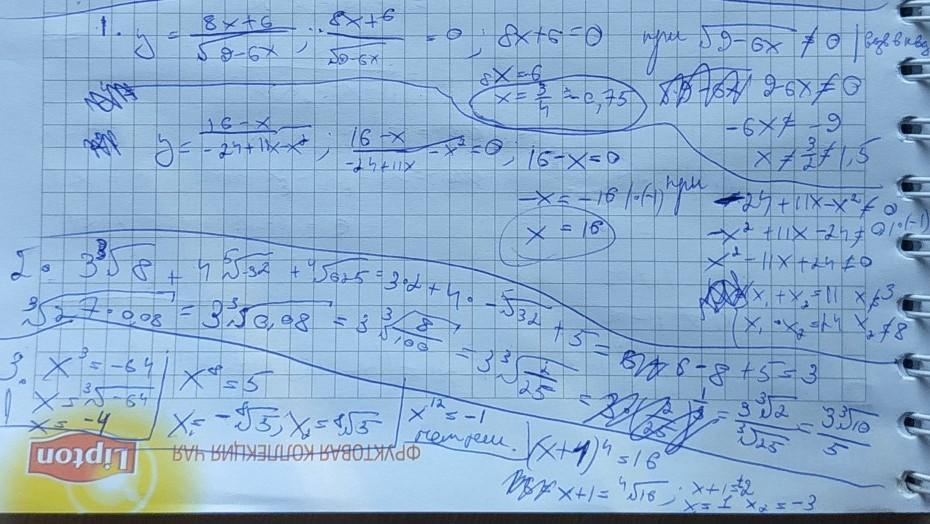 1. y = (8x+6)/√(9-6x) ; (8x+6)/√(9-6x) = 0 ; 8x+6=0 при √(9-6x) ≠ 0
8x=-6
x = 3/4 = -0,75
9-6x ≠ 0
-6x ≠ -9
x ≠ 3/2 ≠ 1,5
y = (16-x)/(-24+11x-x²) ; (16-x)/(-24+11x) - x² = 0 ; 16-x=0
-x = -16 |·(-1) при
x = 16
-24+11x-x² ≠ 0
-x²+11x-24 ≠ 0 |·(-1)
x²-11x+24 ≠ 0
x₁+x₂=11 x₁≠3
x₁·x₂=24 x₂≠8
2. 3∛8 + 4 ⁵√-32 + ⁴√625 = 3·2+4· -⁵√32 + 5 = 6-8+5=3
∛(27·0,08) = 3∛0,08 = 3∛(8/100) = 3∛(2/25) = 3∛2/∛25 = 3∛10/5
3. x³ = -64
x = ∛-64
x = -4
x⁸ = 5
x₁ = -⁸√5, x₂ = ⁸√5
x¹² = -1
нет реш.
(x+1)⁴ = 16
x+1 = ⁴√16 ; x+1=±2
x=1 x₂=-3
Lipton
ФРУКТОВАЯ КОЛЛЕКЦИЯ ЧАЯ